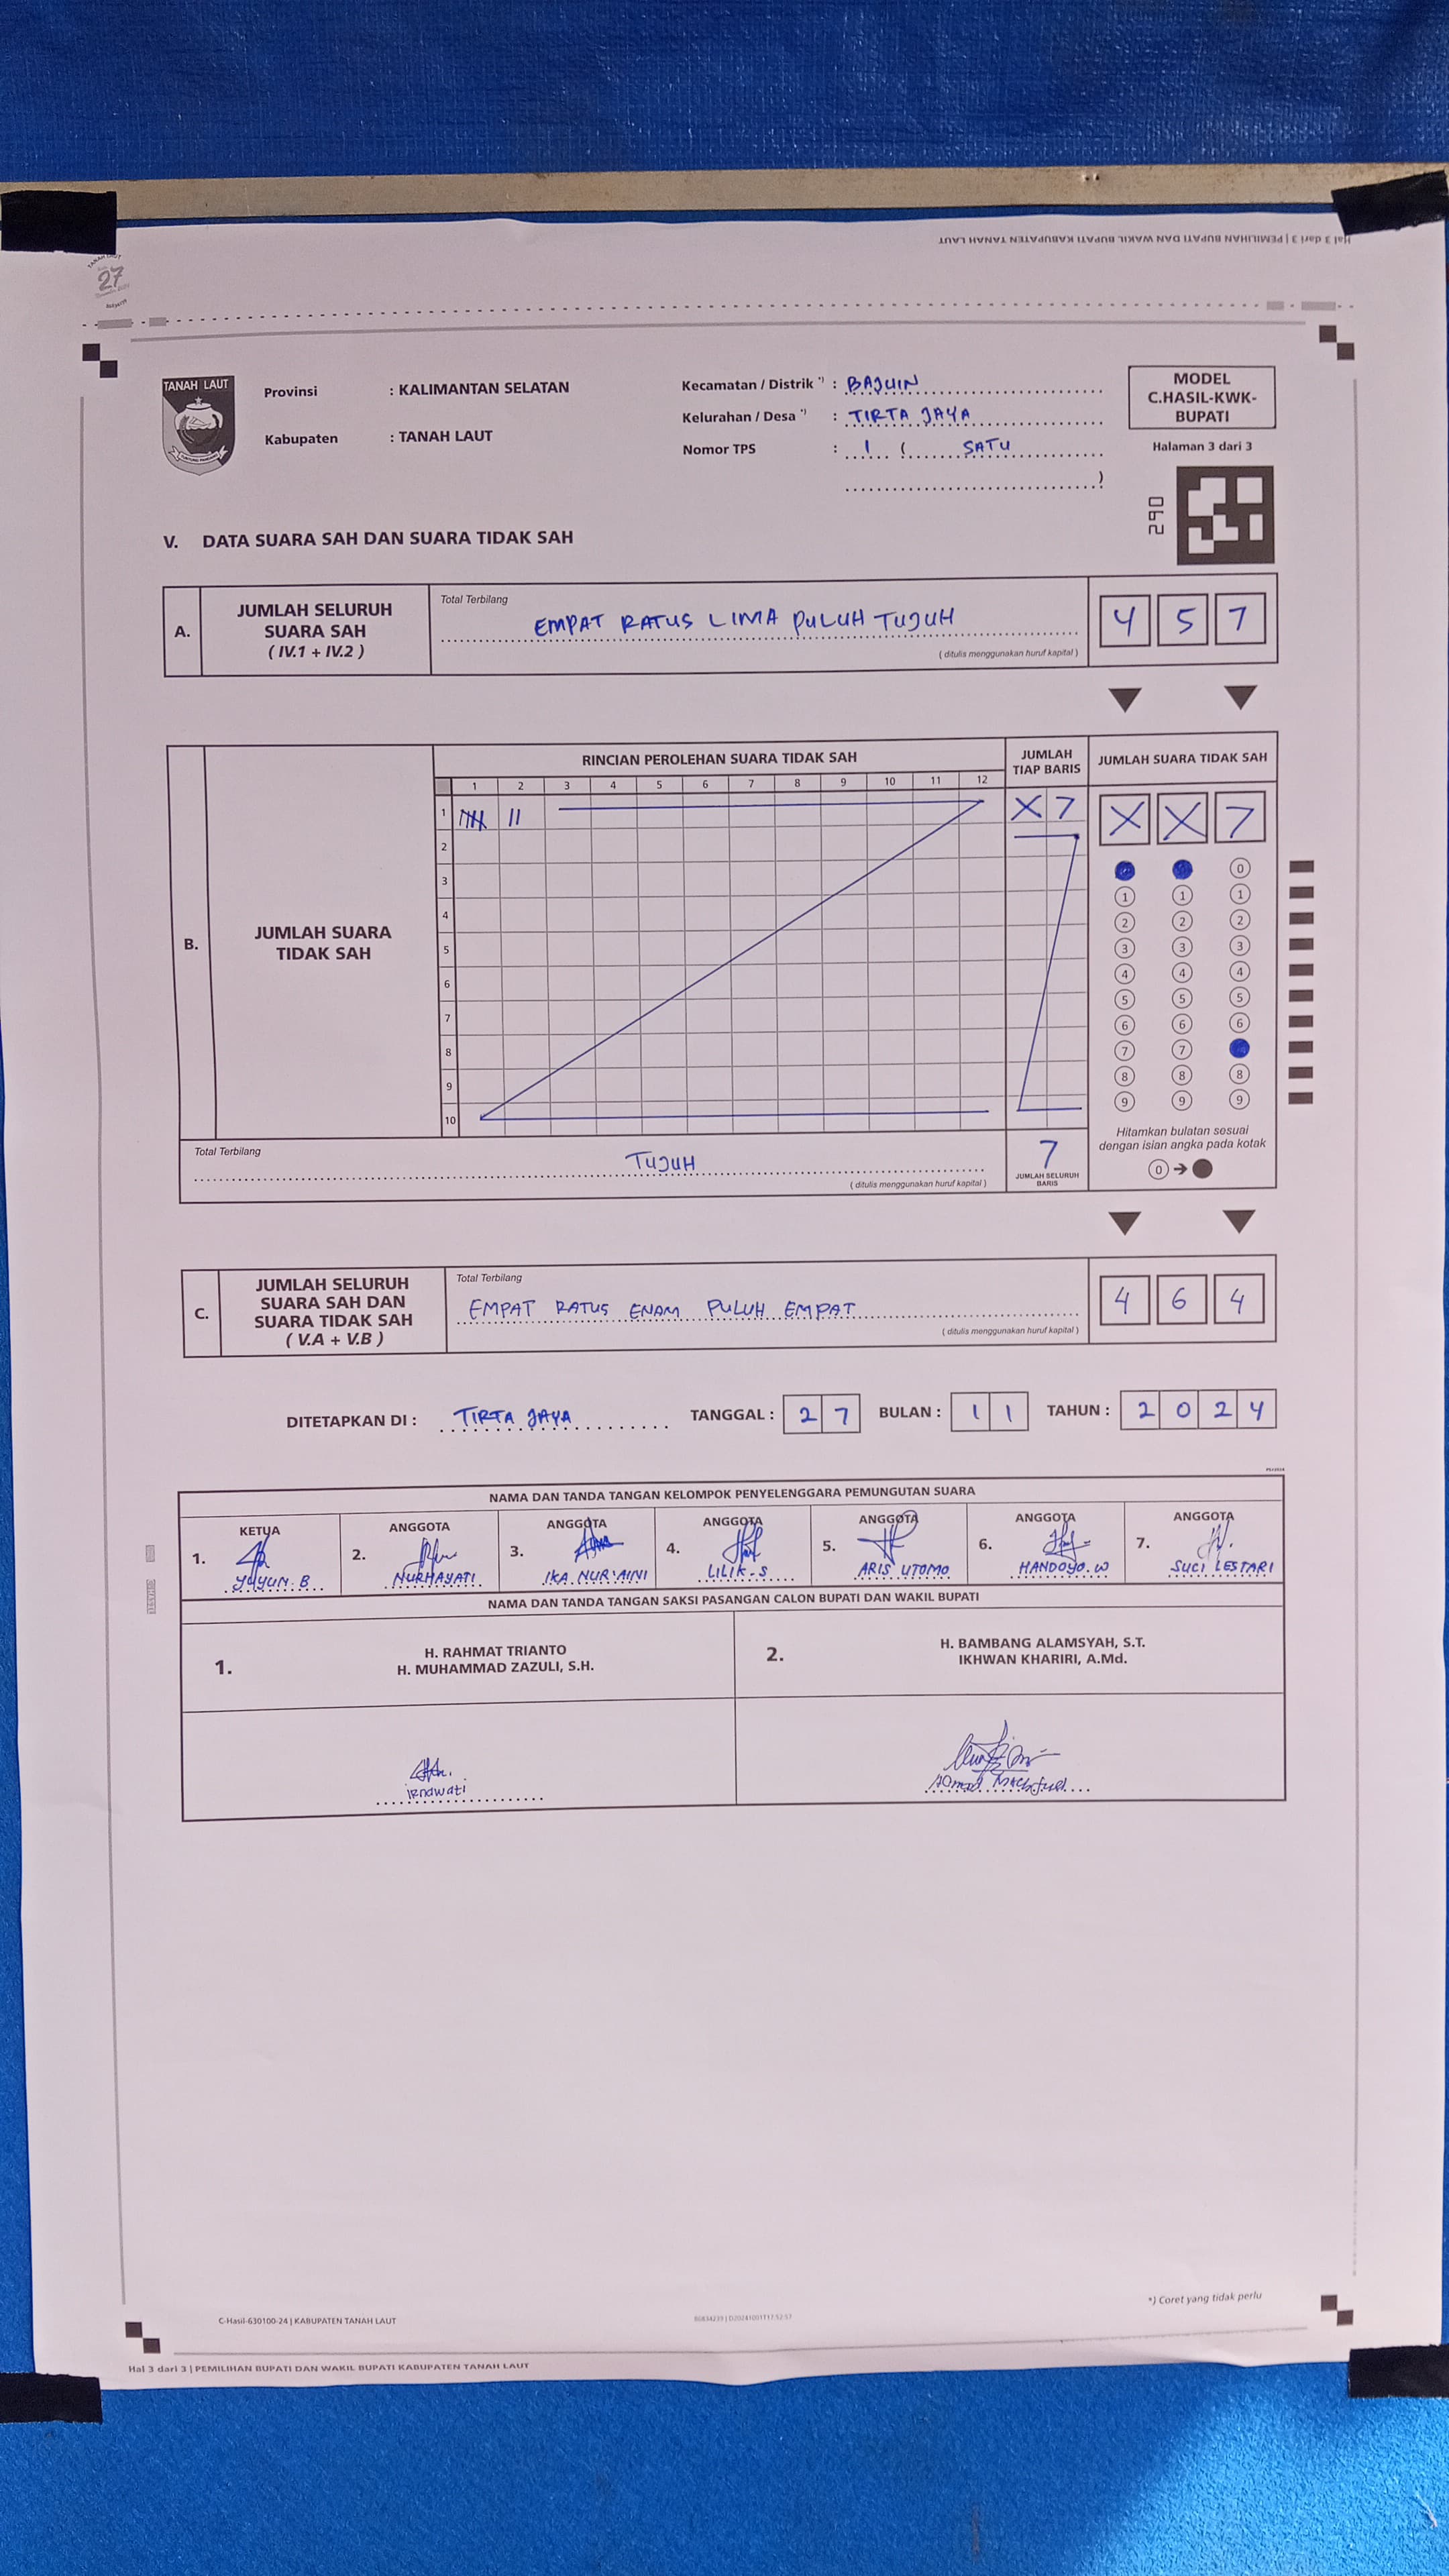 Hal 3 dari 3 | PEMILIHAN BUPATI DAN WAKIL BUPATI KABUPATEN TANAH LAUT
TANAH LAUT
27
TANAH LAUT
Provinsi : KALIMANTAN SELATAN
Kabupaten : TANAH LAUT
Kecamatan / Distrik *) : BAJUIN
Kelurahan / Desa *) : TIRTA JAYA
Nomor TPS : 1 ( SATU )
MODEL
C.HASIL-KWK-
BUPATI
Halaman 3 dari 3
290
V. DATA SUARA SAH DAN SUARA TIDAK SAH
A. JUMLAH SELURUH
SUARA SAH
( IV.1 + IV.2 )
Total Terbilang
EMPAT RATUS LIMA PULUH TUJUH
( ditulis menggunakan huruf kapital )
4 5 7
B. JUMLAH SUARA
TIDAK SAH
RINCIAN PEROLEHAN SUARA TIDAK SAH
1 2 3 4 5 6 7 8 9 10 11 12
1
2
3
4
5
6
7
8
9
10
JUMLAH
TIAP BARIS
X 7
JUMLAH SUARA TIDAK SAH
X X 7
0
1 1 1
2 2 2
3 3 3
4 4 4
5 5 5
6 6 6
7 7
8 8 8
9 9 9
Hitamkan bulatan sesuai
dengan isian angka pada kotak
0
Total Terbilang
TUJUH
( ditulis menggunakan huruf kapital )
7
JUMLAH SELURUH
BARIS
C. JUMLAH SELURUH
SUARA SAH DAN
SUARA TIDAK SAH
( V.A + V.B )
Total Terbilang
EMPAT RATUS ENAM PULUH EMPAT
( ditulis menggunakan huruf kapital )
4 6 4
DITETAPKAN DI : TIRTA JAYA TANGGAL : 2 7 BULAN : 1 1 TAHUN : 2 0 2 4
NAMA DAN TANDA TANGAN KELOMPOK PENYELENGGARA PEMUNGUTAN SUARA
KETUA ANGGOTA ANGGOTA ANGGOTA ANGGOTA ANGGOTA ANGGOTA
1. 2. 3. 4. 5. 6. 7.
YUYUN. B NURHAYATI IKA NUR'AINI LILIK. S ARIS UTOMO HANDOYO. W SUCI LESTARI
NAMA DAN TANDA TANGAN SAKSI PASANGAN CALON BUPATI DAN WAKIL BUPATI
1. H. RAHMAT TRIANTO
H. MUHAMMAD ZAZULI, S.H.
2. H. BAMBANG ALAMSYAH, S.T.
IKHWAN KHARIRI, A.Md.
*) Coret yang tidak perlu
C-Hasil-630100-24 | KABUPATEN TANAH LAUT
Hal 3 dari 3 | PEMILIHAN BUPATI DAN WAKIL BUPATI KABUPATEN TANAH LAUT